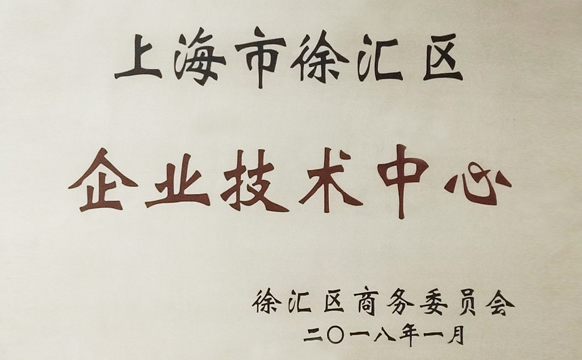 上海市徐汇区
企业技术中心
徐汇区商务委员会
二〇一八年一月